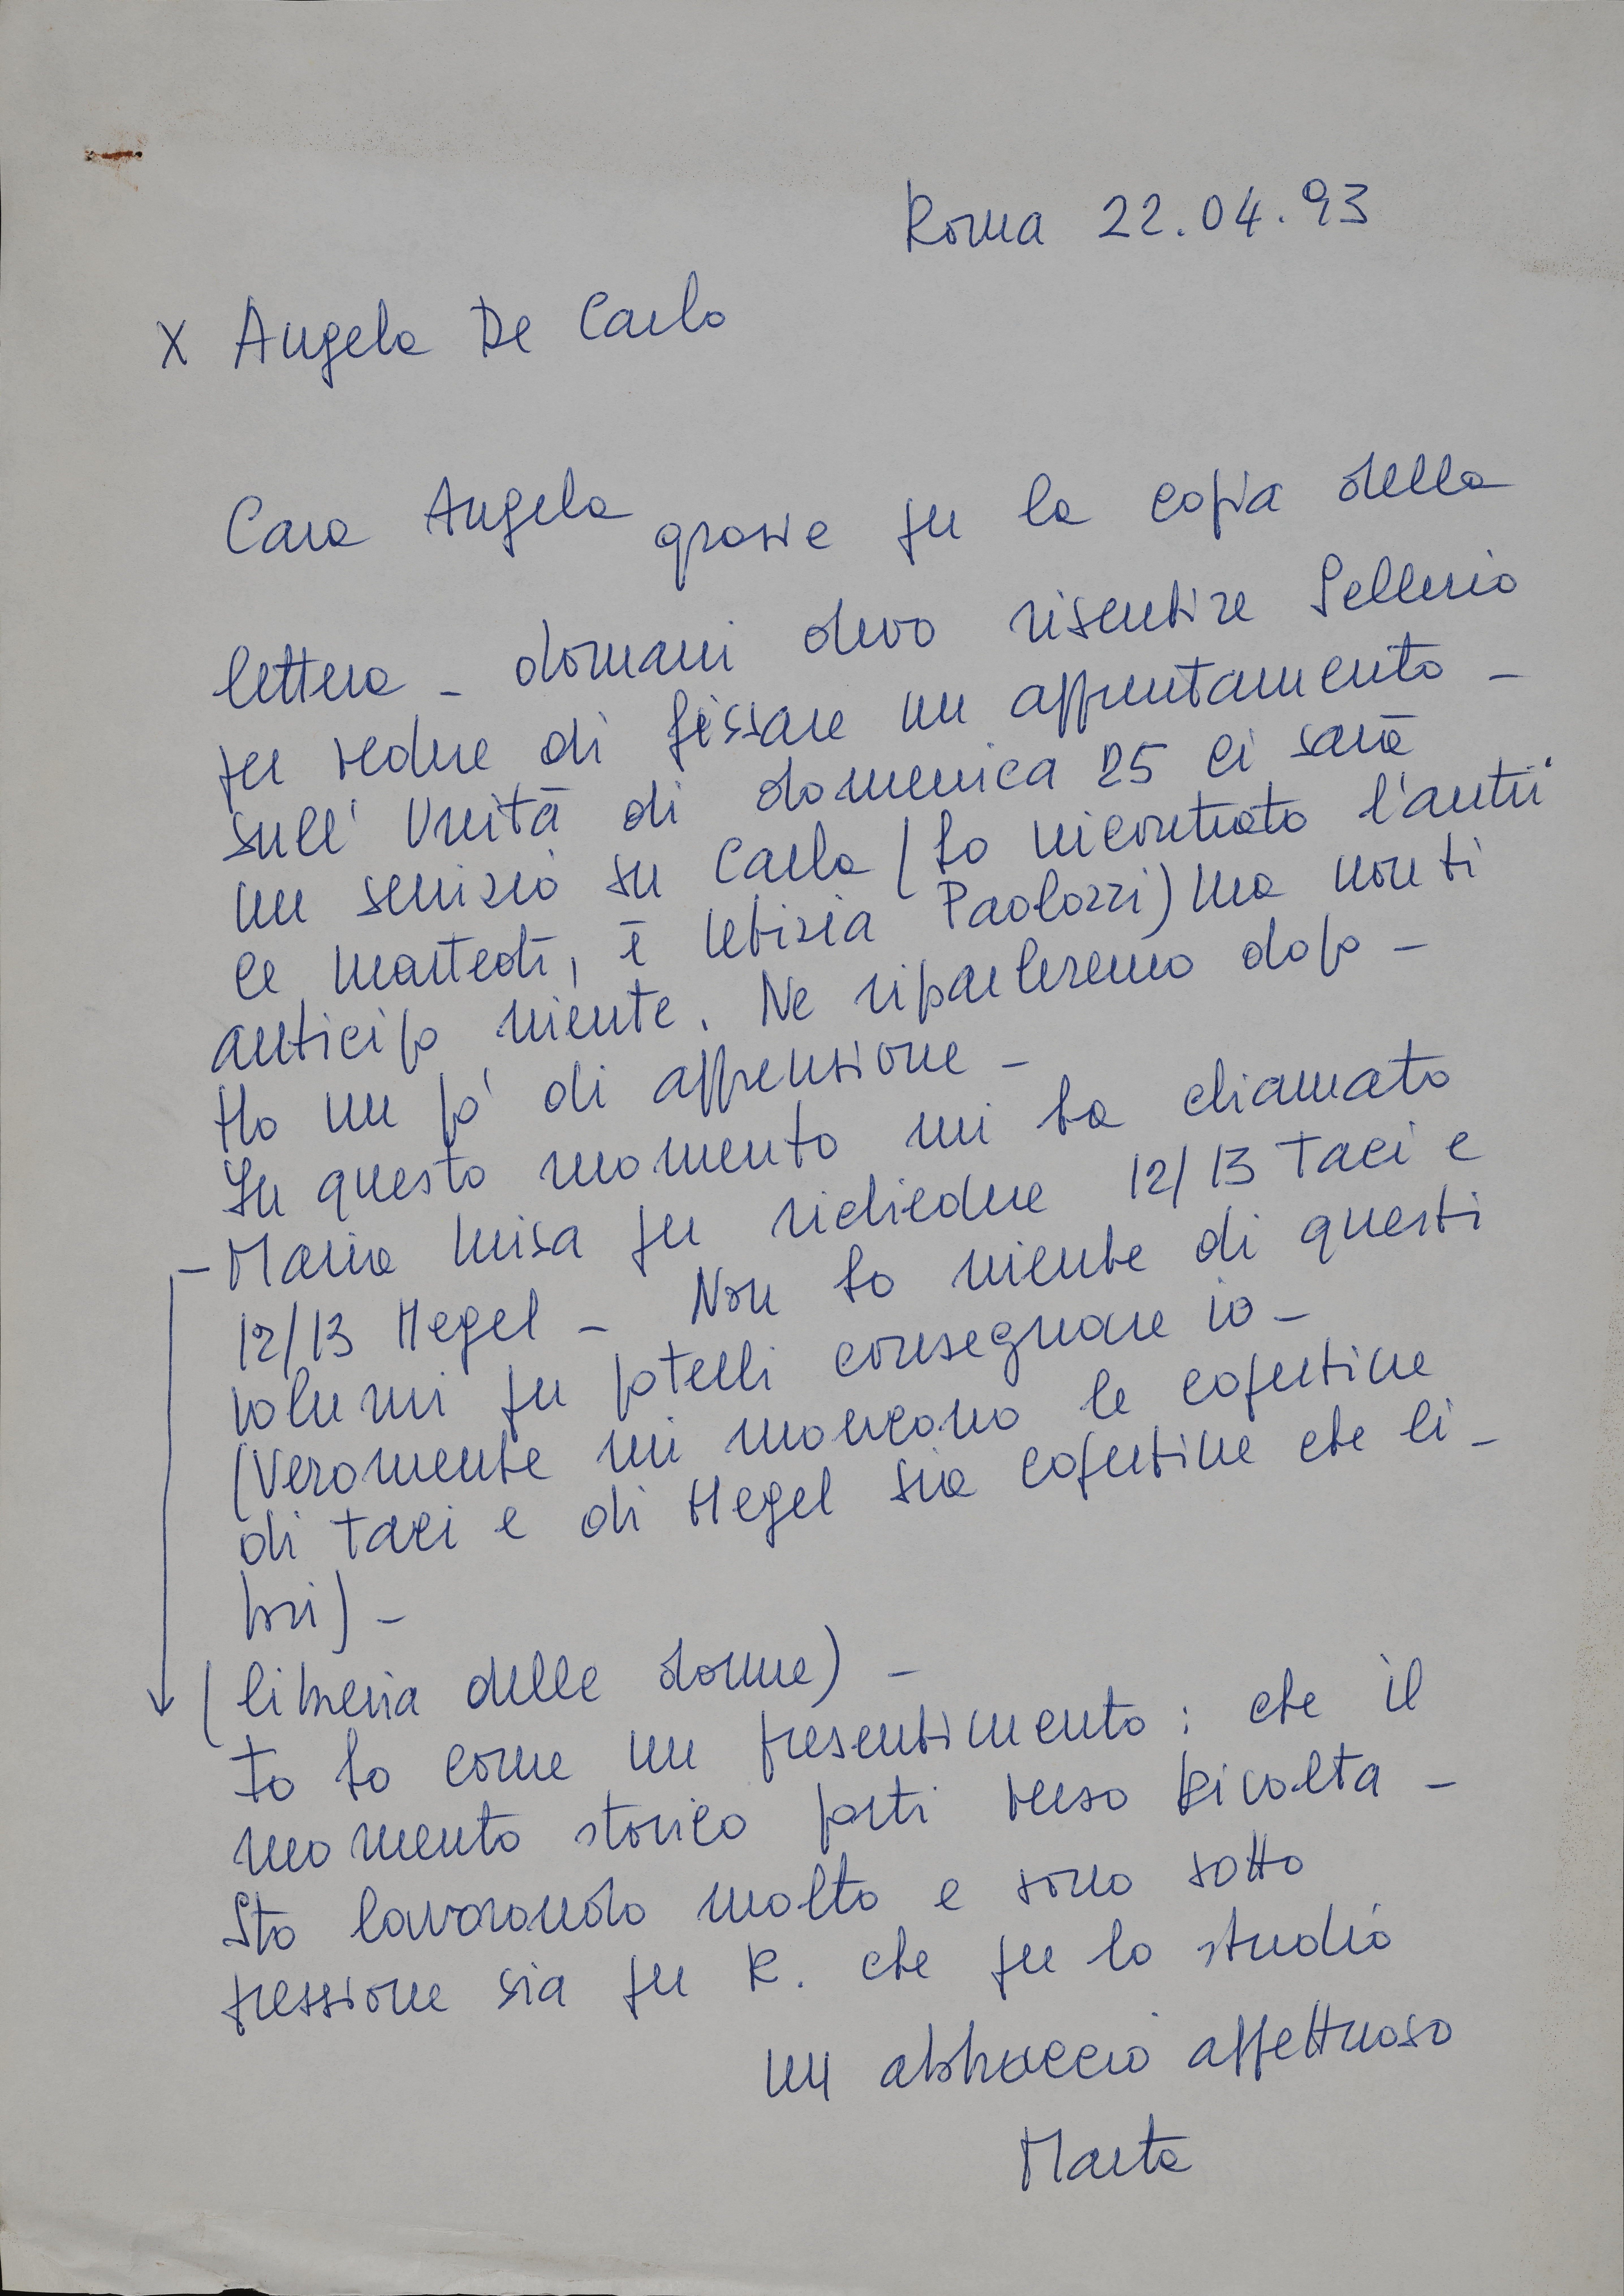 Roma 22.04.93
X Angela De Carlo
Cara Angela grazie per la copia della
lettera - domani devo risentire Sellerio
per vedere di fissare un appuntamento -
sull' Unità di domenica 25 ci sarà
un servizio su Carla (ho incontrato l'anti
ce martedì, è Letizia Paolozzi) ma non ti
anticipo niente. Ne riparleremo dopo -
Ho un pò di apprensione -
In questo momento mi ha chiamato
- Maria Luisa per richiedere 12/13 Taci e
12/13 Hegel - Non ho niente di questi
volumi per poterli consegnare io -
(Veramente mi mancano le copertine
di Taci e di Hegel sia copertine che li -
bri) -
(libreria delle donne) -
Io ho come un presentimento: che il
momento storico porti verso Rivolta -
Sto lavorando molto e sono sotto
pressione sia per R. che per lo studio
un abbraccio affettuoso
Marta